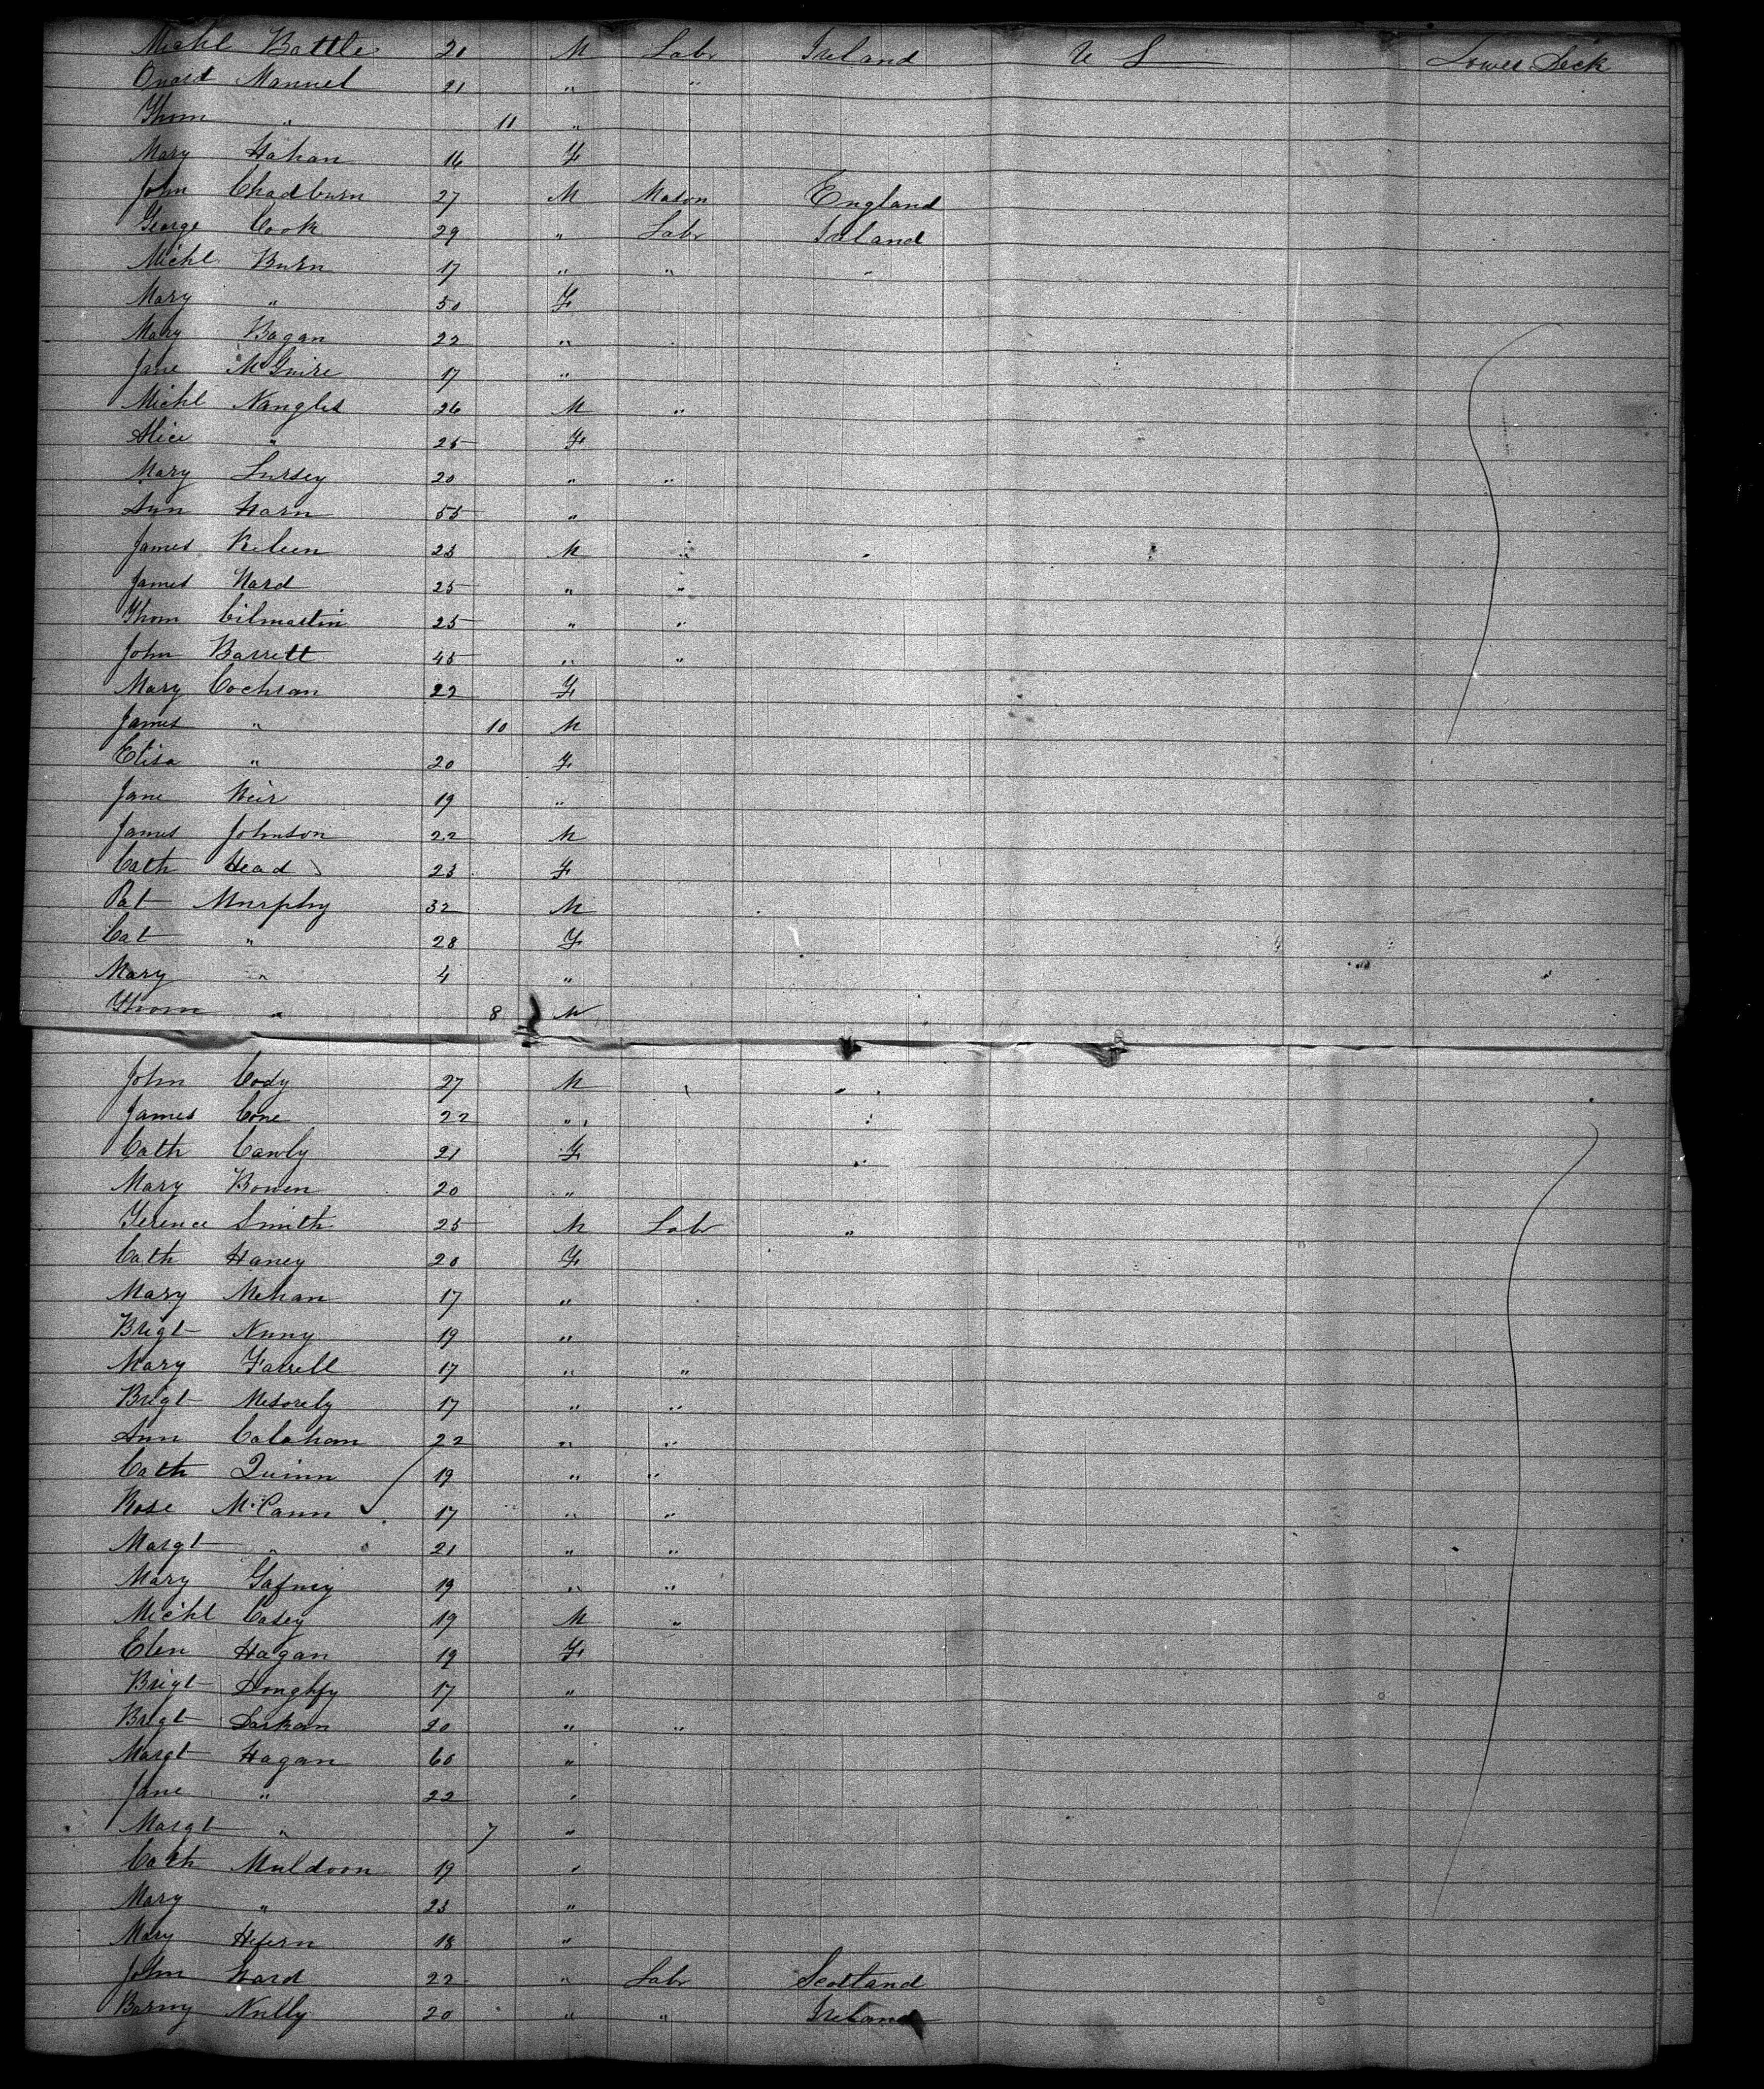 Michl Battle 20 M Labr Ireland U S Lower Deck
Onard Manuel 21 " "
Thom " 11 "
Mary Hahan 16 F
John Chadburn 27 M Mason England
George Cook 29 " Labr Ireland
Michl Burn 17 " " "
Mary " 50 F
Mary Bagan 22 "
Jane McGuire 17 "
Michl Nangles 26 M "
Alice " 25 F
Mary Lursey 20 " "
Ann Harn 55 "
James Kileen 23 M "
James Ward 25 " "
Thom Cilmartin 25 " "
John Barrett 45 " "
Mary Cochran 22 F
James " 10 M
Elisa " 20 F
Jane Weir 19 "
James Johnson 22 M
Cath Head 23 F
Pat Murphy 32 M
Cat " 28 F
Mary " 4 "
Thom " 8 M
John Cody 27 M
James Cone 22 "
Cath Cawly 21 F
Mary Bowen 20 "
Terence Smith 25 M Labr "
Cath Haney 20 F
Mary Mehan 17 "
Brigt Nuny 19 "
Mary Farrell 17 " "
Brigt 17 " "
Ann Calahan 22 " "
Cath Quinn 19 " "
Rose McCann 17 " "
Margt " 21 " "
Mary Gafney 19 " "
Michl Casey 19 M "
Elen Hagan 19 F
Brigt 17 "
Brigt Larkan 20 " "
Margt Hagan 60 "
Jane " 22 "
Margt " 7 "
Cath Muldoon 19 "
Mary " 23 "
Mary Hefern 18 "
John Ward 22 " Labr Scotland
Barny Nully 20 " " Ireland